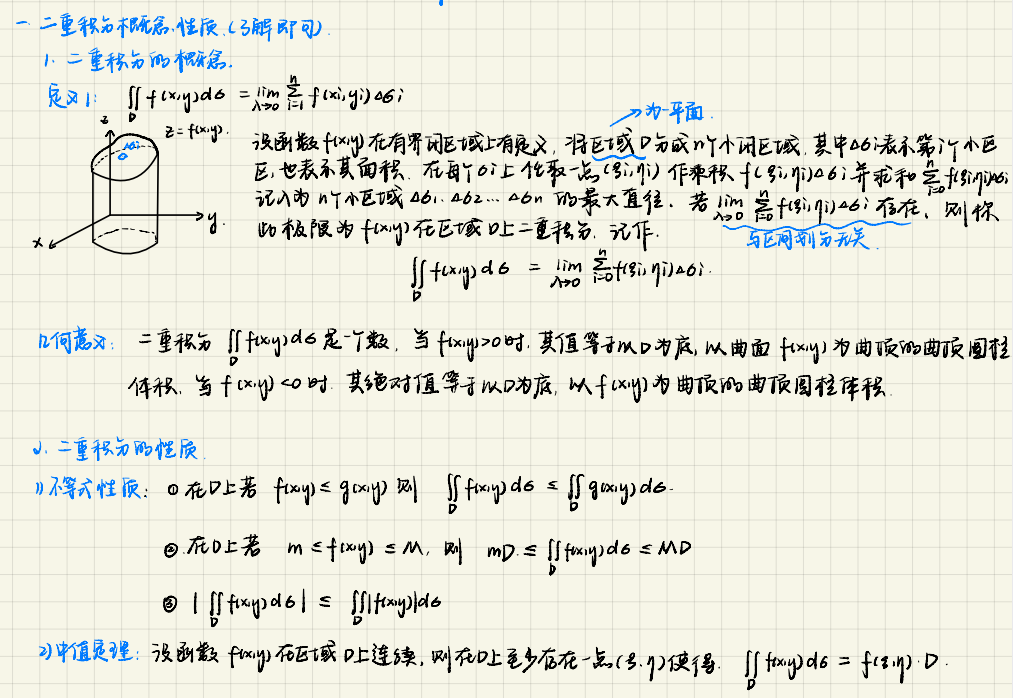 一 二重积分概念、性质.(了解即可)
1. 二重积分的概念.
定义1: ∬_D f(x,y)dσ = lim_{λ→0} Σ_{i=1}^{n} f(xi,yi)Δσi
→为一平面
z
z=f(x,y).
Δσi
σ
x
y.
设函数 f(x,y) 在有界闭区域上有定义, 将区域 D 分成 n个小闭区域, 其中Δσi表示第i个小区
区, 也表示其面积. 在每个σi上任取一点(ξi,ηi) 作乘积 f(ξi,ηi)Δσi 并求和 Σ_{i=0}^{n} f(ξi,ηi)Δσi
记λ为 n个小区域 Δσ1、Δσ2…Δσn 的最大直径. 若 lim_{λ→0} Σ_{i=0}^{n} f(ξi,ηi)Δσi 存在, 则称
此极限为 f(x,y) 在区域 D上二重积分. 记作.
与区间划分无关.
∬_D f(x,y)dσ = lim_{λ→0} Σ_{i=0}^{n} f(ξi,ηi)Δσi.
几何意义: 二重积分 ∬_D f(x,y)dσ 是一个数, 当 f(x,y)>0时. 其值等于以D为底, 以曲面 f(x,y) 为曲顶的曲顶圆柱
体积, 当 f(x,y)<0 时. 其绝对值等于以D为底, 以 f(x,y) 为曲顶的曲顶圆柱体积.
2. 二重积分的性质.
1) 不等式性质: ① 在D上若 f(x,y) ≤ g(x,y) 则 ∬_D f(x,y)dσ ≤ ∬_D g(x,y)dσ.
② 在D上若 m ≤ f(x,y) ≤ M, 则 mD ≤ ∬_D f(x,y)dσ ≤ MD
③ |∬_D f(x,y)dσ| ≤ ∬_D |f(x,y)|dσ
2) 中值定理: 设函数 f(x,y) 在区域 D上连续, 则在D上至少存在一点(ξ,η)使得. ∬_D f(x,y)dσ = f(ξ,η)·D.